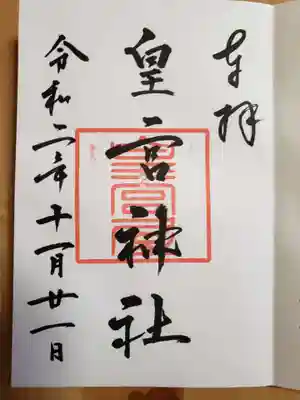 奉拝
皇宮神社
令和二年十一月廿一日